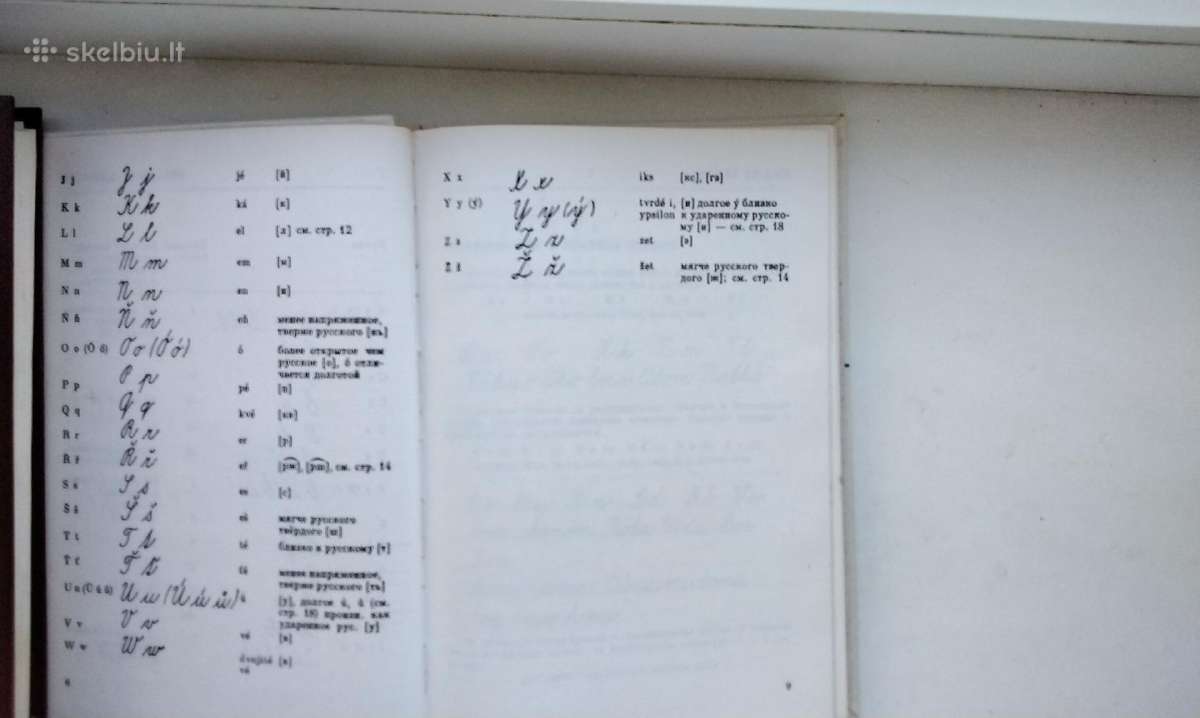 skelbiu.lt
J j J j jé [й]
K k K k ká [к]
L l L l el [л] см. стр. 12
M m M m em [м]
N n N n en [н]
Ň ň Ň ň eň менее напряженное,
тверже русского [нь]
O o (Ó ó) O o (Ó ó) ó более открытое чем
русское [о], ó отли-
чается долготой
P p P p pé [п]
Q q Q q kvé [кв]
R r R r er [р]
Ř ř Ř ř eř [рж], [рш], см. стр. 14
S s S s es [с]
Š š Š š eš мягче русского
твёрдого [ш]
T t T t té близко к русскому [т]
Ť ť Ť ť tě менее напряженное,
тверже русского [ть]
U u (Ú ú ů) U u (Ú ú ů) ú [у], долгое ú, ů (см.
стр. 18) произн. как
ударенное рус. [у]
V v V v vé [в]
W w W w dvojité [в]
vé
6
X x X x iks [кс], [гз]
Y y (ý) Y y (ý) tvrdé i, [и] долгое ý близко
ypsilon к ударенному русско-
му [и] — см. стр. 18
Z z Z z zet [з]
Ž ž Ž ž žet мягче русского твер-
дого [ж]; см. стр. 14
9